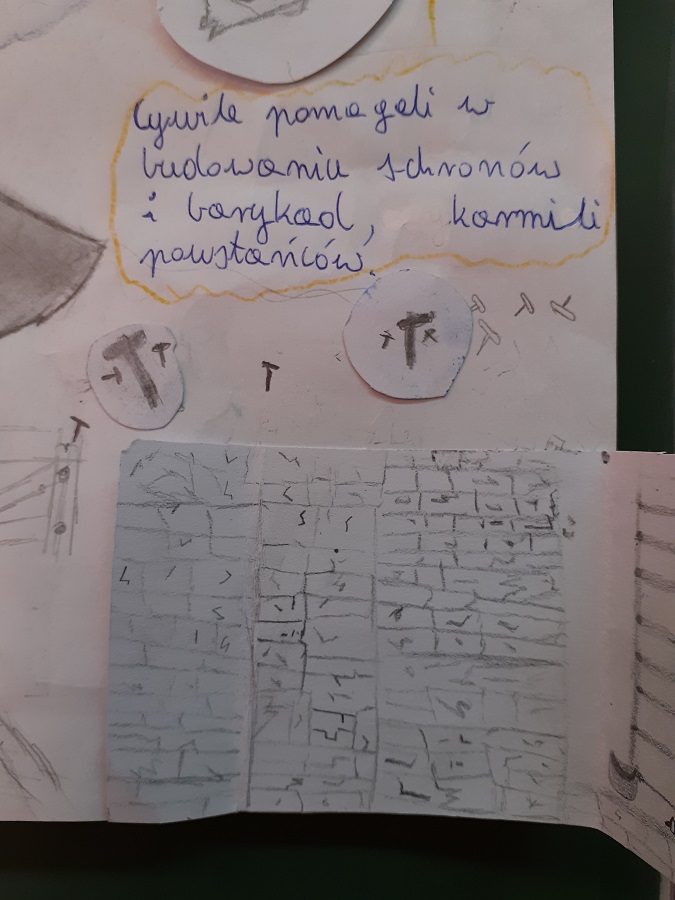 Cywile pomagali w
budowaniu schronów
i barykad, karmili
powstańców.